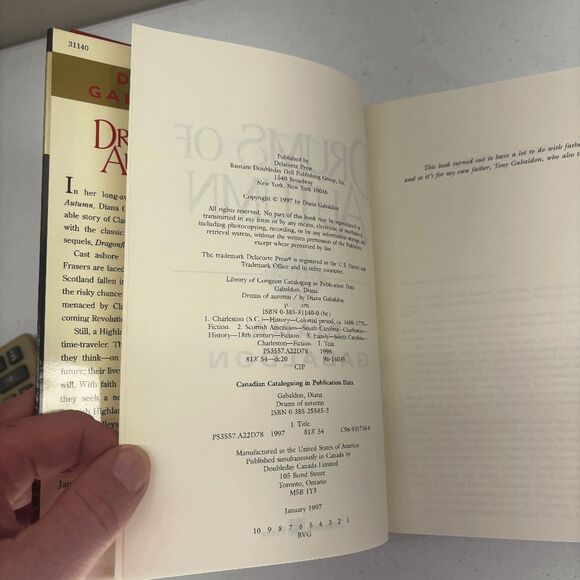 31140
D
GA
DR
A
In her long-aw
Autumn, Diana G
able story of Clai
with the classic
sequels, Dragonf
Cast ashore
Frasers are faced
Scotland fallen i
the risky chance
menaced by Cl
coming Revolutio
Still, a Highla
time-traveler. Th
they think—on
future; their live
will. With faith
they seek a ne
Highl
Jan
DRUMS OF
GABALDON
Published by
Delacorte Press
Bantam Doubleday Dell Publishing Group, Inc.
1540 Broadway
New York, New York 10036
Copyright © 1997 by Diana Gabaldon
All rights reserved. No part of this book may be reproduced or
transmitted in any form or by any means, electronic or mechanical,
including photocopying, recording, or by any information storage and
retrieval system, without the written permission of the Publisher,
except where permitted by law.
The trademark Delacorte Press® is registered in the U.S. Patent and
Trademark Office and in other countries.
Library of Congress Cataloging in Publication Data
Gabaldon, Diana.
Drums of autumn / by Diana Gabaldon.
p. cm.
ISBN 0-385-31140-0 (hc)
1. Charleston (S.C.)—History—Colonial period, ca. 1600–1775—
Fiction. 2. Scottish Americans—South Carolina—Charleston—
History—18th century—Fiction. 3. Family—South Carolina—
Charleston—Fiction. I. Title.
PS3557.A22D78 1996
813'.54—dc20
CIP
Canadian Cataloguing in Publication Data
Gabaldon, Diana
Drums of autumn
ISBN 0 385 25585-3
I. Title.
PS3557.A22D78 1997 813'.54 C96-931758-0
Manufactured in the United States of America
Published simultaneously in Canada by
Doubleday Canada Limited
105 Bond Street
Toronto, Ontario
M5B 1Y3
January 1997
10 9 8 7 6 5 4 3 2 1
BVG
This book turned out to have a lot to do with fathe
and so it's for my own father, Tony Gabaldon, who also t